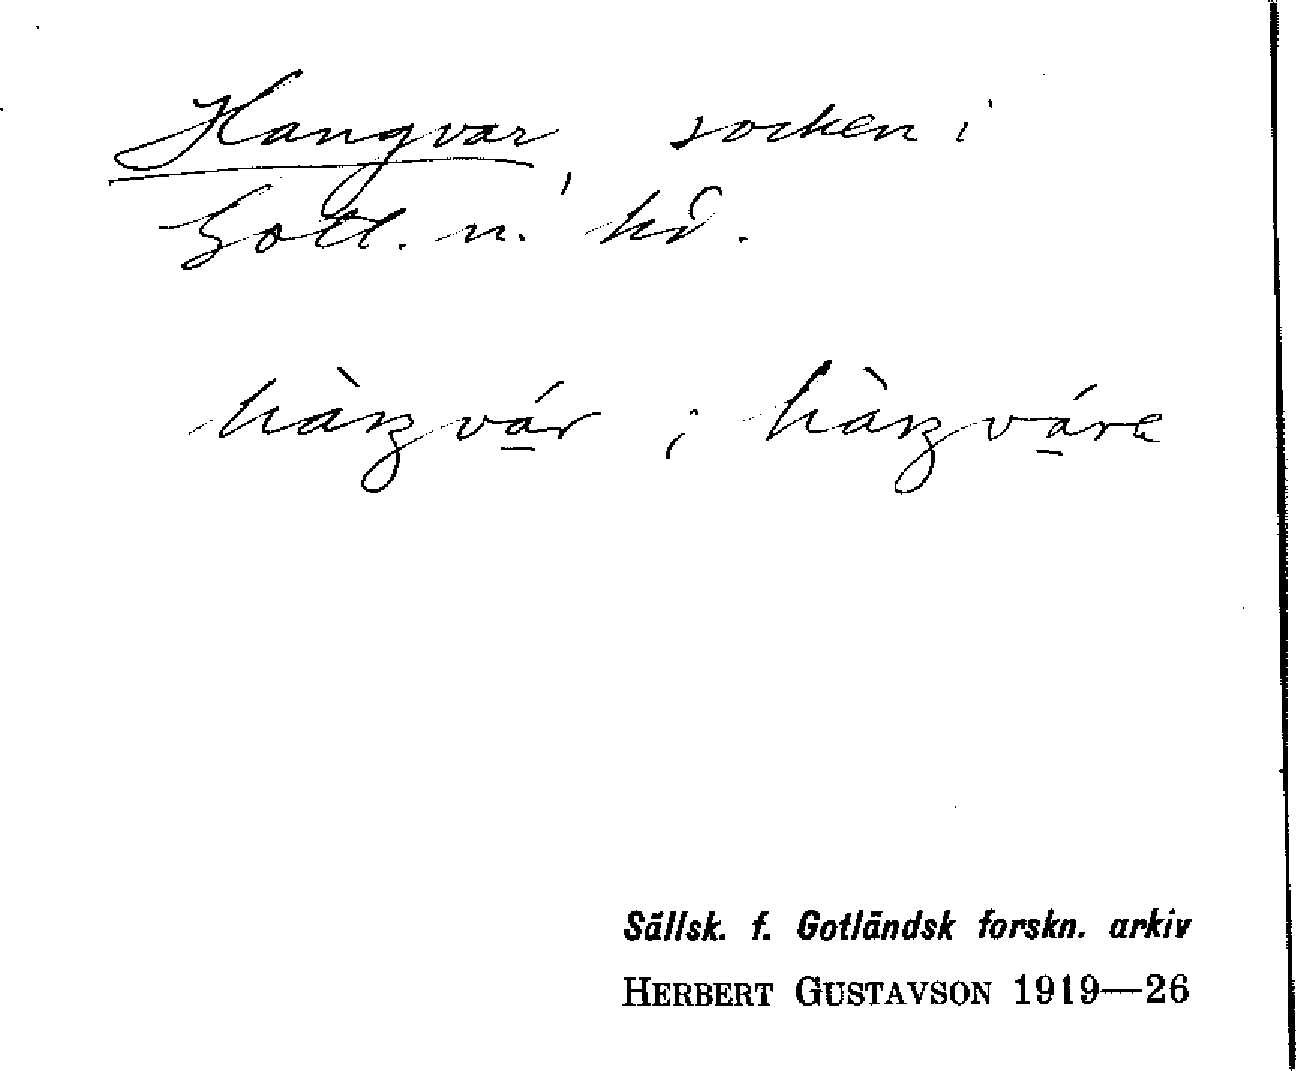 Hangvar, socken i
Gotl. n. hd.
hàŋvár ; hàŋváre
Sällsk. f. Gotländsk forskn. arkiv
HERBERT GUSTAVSON 1919—26